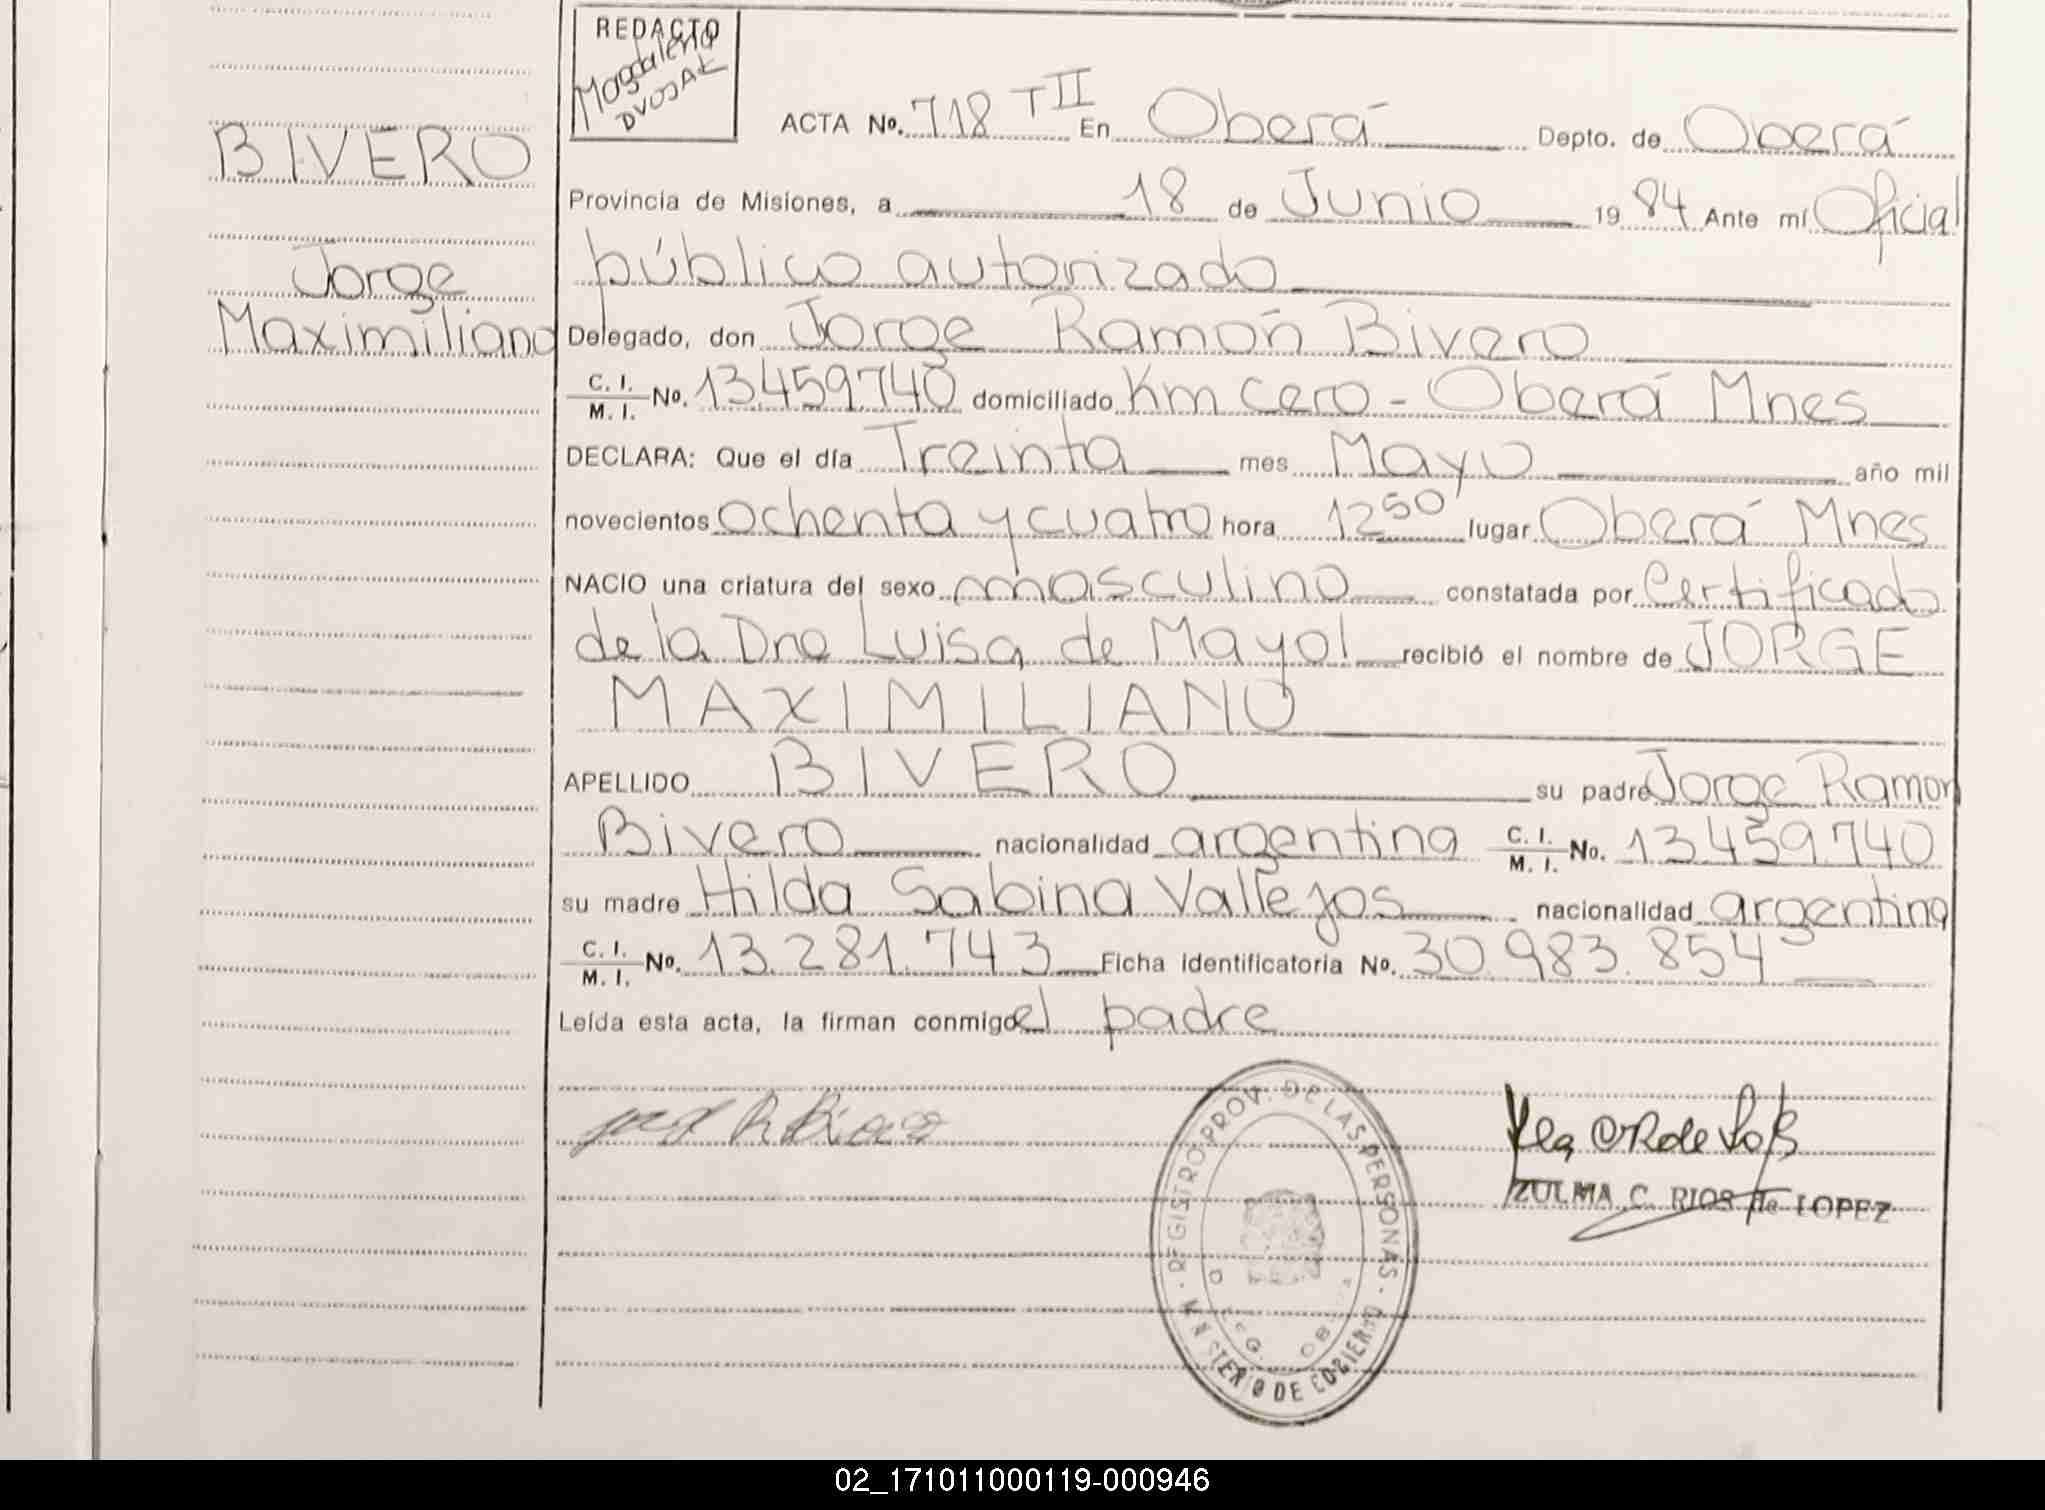 REDACTO
Magdalena
DVOSAK
BIVERO
Jorge
Maximiliano
ACTA No. 718 T II En Oberá Depto. de Oberá
Provincia de Misiones, a 18 de Junio 19 84 Ante mí Oficial
público autorizado
Delegado, don Jorge Ramón Bivero
C. I. / M. I. No. 13.459.740 domiciliado Km cero - Oberá Mnes
DECLARA: Que el día Treinta mes Mayo año mil
novecientos ochenta y cuatro hora 12 50 lugar Oberá Mnes
NACIO una criatura del sexo masculino constatada por Certificado
de la Dra Luisa de Mayol recibió el nombre de JORGE
MAXIMILIANO
APELLIDO BIVERO su padre Jorge Ramon
Bivero nacionalidad argentina C. I. / M. I. No. 13.459.740
su madre Hilda Sabina Vallejos nacionalidad argentina
C. I. / M. I. No. 13.281.743 Ficha identificatoria No. 30.983.854
Leída esta acta, la firman conmigo el padre
REGISTRO PROV. DE LAS PERSONAS
MINISTERIO DE GOBIERNO
ZULMA C. RIOS de LOPEZ
02_171011000119-000946